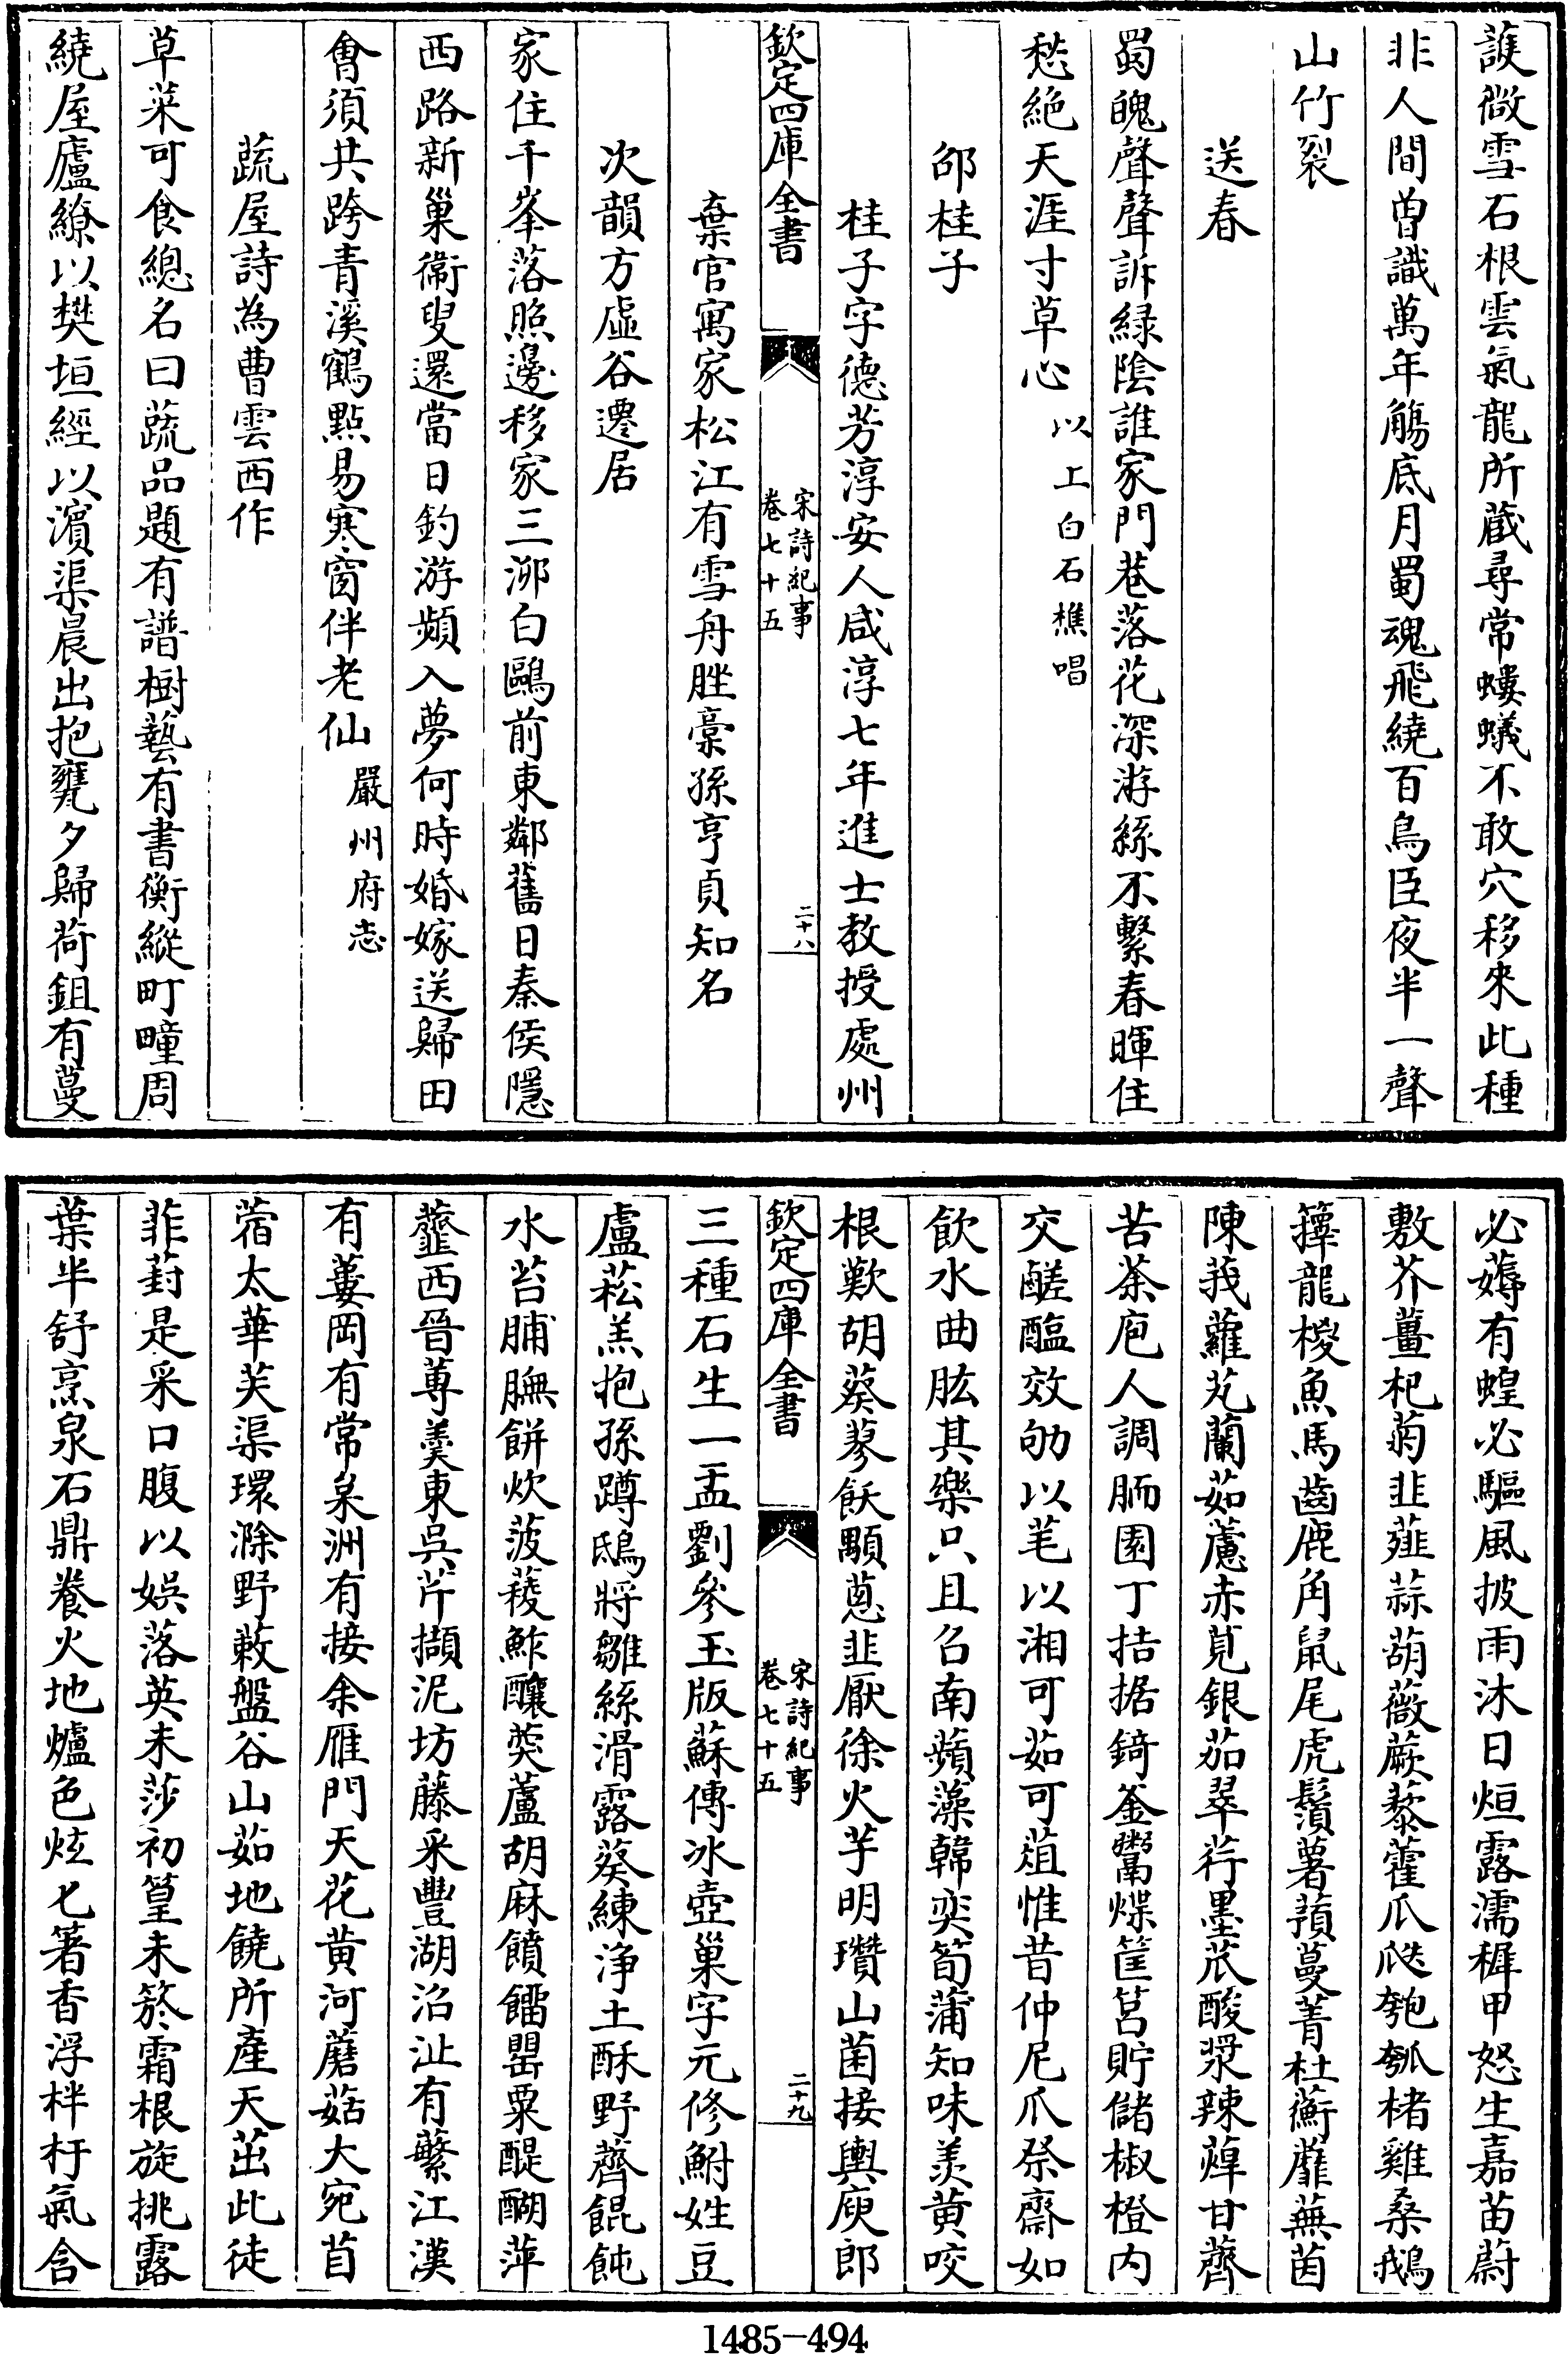 護微雪石根雲氣龍所蔵尋常螻蟻不敢穴移來此種
非人間曽識萬年觴底月蜀魂飛繞百鳥臣夜半一聲
山竹裂
送春
蜀魄聲聲訴緑陰誰家門巷落花深游絲不繫春暉住
愁絶天涯寸草心以上白石樵唱
邵桂子
桂子字德芳淳安人咸淳七年進士教授處州
欽定四庫全書
宋詩紀事
卷七十五
二十八
棄官寓家松江有雪舟脞稾孫亨貞知名
次韻方虛谷遷居
家住千峯落照邊移家三泖白鷗前東鄰舊日秦侯隱
西路新巢衞叟還當日釣游頻入夢何時婚嫁送歸田
會須共跨青溪鶴點易寒窗伴老仙嚴州府志
蔬屋詩為曹雲西作
草菜可食總名曰蔬品題有譜樹藝有書衡縱町疃周
繞屋廬繚以樊垣經以濵渠晨出抱甕夕歸荷鉏有蔓
必薅有蝗必驅風披雨沐日烜露濡穉甲怒生嘉苗蔚
敷芥薑杞菊韭薤蒜葫薇蕨藜藿爪瓞匏瓠楮雞桑鵝
籜龍椶魚馬齒鹿角鼠尾虎鬚薯蕷蔓菁杜蘅蘼蕪茵
陳莪蘿艽蘭茹藘赤莧銀茄翠荇墨蒎酸漿辣葶甘薺
苦荼庖人調胹園丁拮据錡釜鬻煠筐筥貯儲椒橙内
交醝醢效劬以芼以湘可茹可葅惟昔仲尼爪祭齋如
飲水曲肱其樂只且召南蘋藻韓奕筍蒲知味羡黄咬
根歎胡葵蓼飫顒蔥韭厭徐火芋明瓚山菌接輿庾郎
欽定四庫全書
宋詩紀事
卷七十五
二十九
三種石生一盂劉參玉版蘇傳冰壺巢字元修鮒姓豆
盧菘羔抱孫蹲鴟將雛絲滑露葵練浄土酥野薺餛飩
水苔脯膴餅炊菠薐鮓釀葖蘆胡麻饙餾罌粟醍醐萍
虀西晉蓴羹東吳芹擷泥坊藤采豐湖沼沚有蘩江漢
有蔞岡有常枲洲有接余雁門天花黄河蘑菇大宛苜
蓿太華芙渠環滁野蔌盤谷山茹地饒所產天茁此徒
菲葑是采口腹以娛落英未莎初篁未箊霜根旋挑露
葉半舒烹泉石鼎養火地爐色炫匕箸香浮柈杅氣含
1485-494